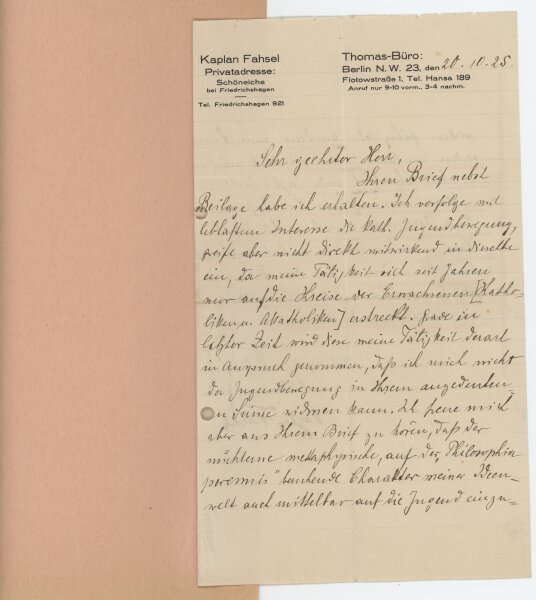 Kaplan Fahsel
Privatadresse:
Schöneiche
bei Friedrichshagen
Tel. Friedrichshagen 921
Thomas-Büro:
Berlin N.W. 23, den 20. 10. 25.
Flotowstraße 1, Tel. Hansa 189
Anruf nur 9-10 vorm., 3-4 nachm.
Sehr geehrter Herr,
Ihren Brief nebst
Beilage habe ich erhalten. Ich verfolge mit
lebhaftem Interesse die kath. Jugendbewegung,
greife aber nicht direkt mitwirkend in dieselbe
ein, da meine Tätigkeit sich seit Jahren
nur auf die Kreise der Erwachsenen [Katho-
liken u. Akatholiken] erstreckt. Grade in
letzter Zeit wird diese meine Tätigkeit derart
in Anspruch genommen, daß ich mich nicht
der Jugendbewegung in Ihrem angedeuten-
en Sinne widmen kann. Ich freue mich
aber aus Ihrem Brief zu hören, daß der
nüchterne metaphysische, auf der "Philosophia
perennis" beruhende Charakter meiner Ideen-
welt auch mittelbar auf die Jugend einzu-